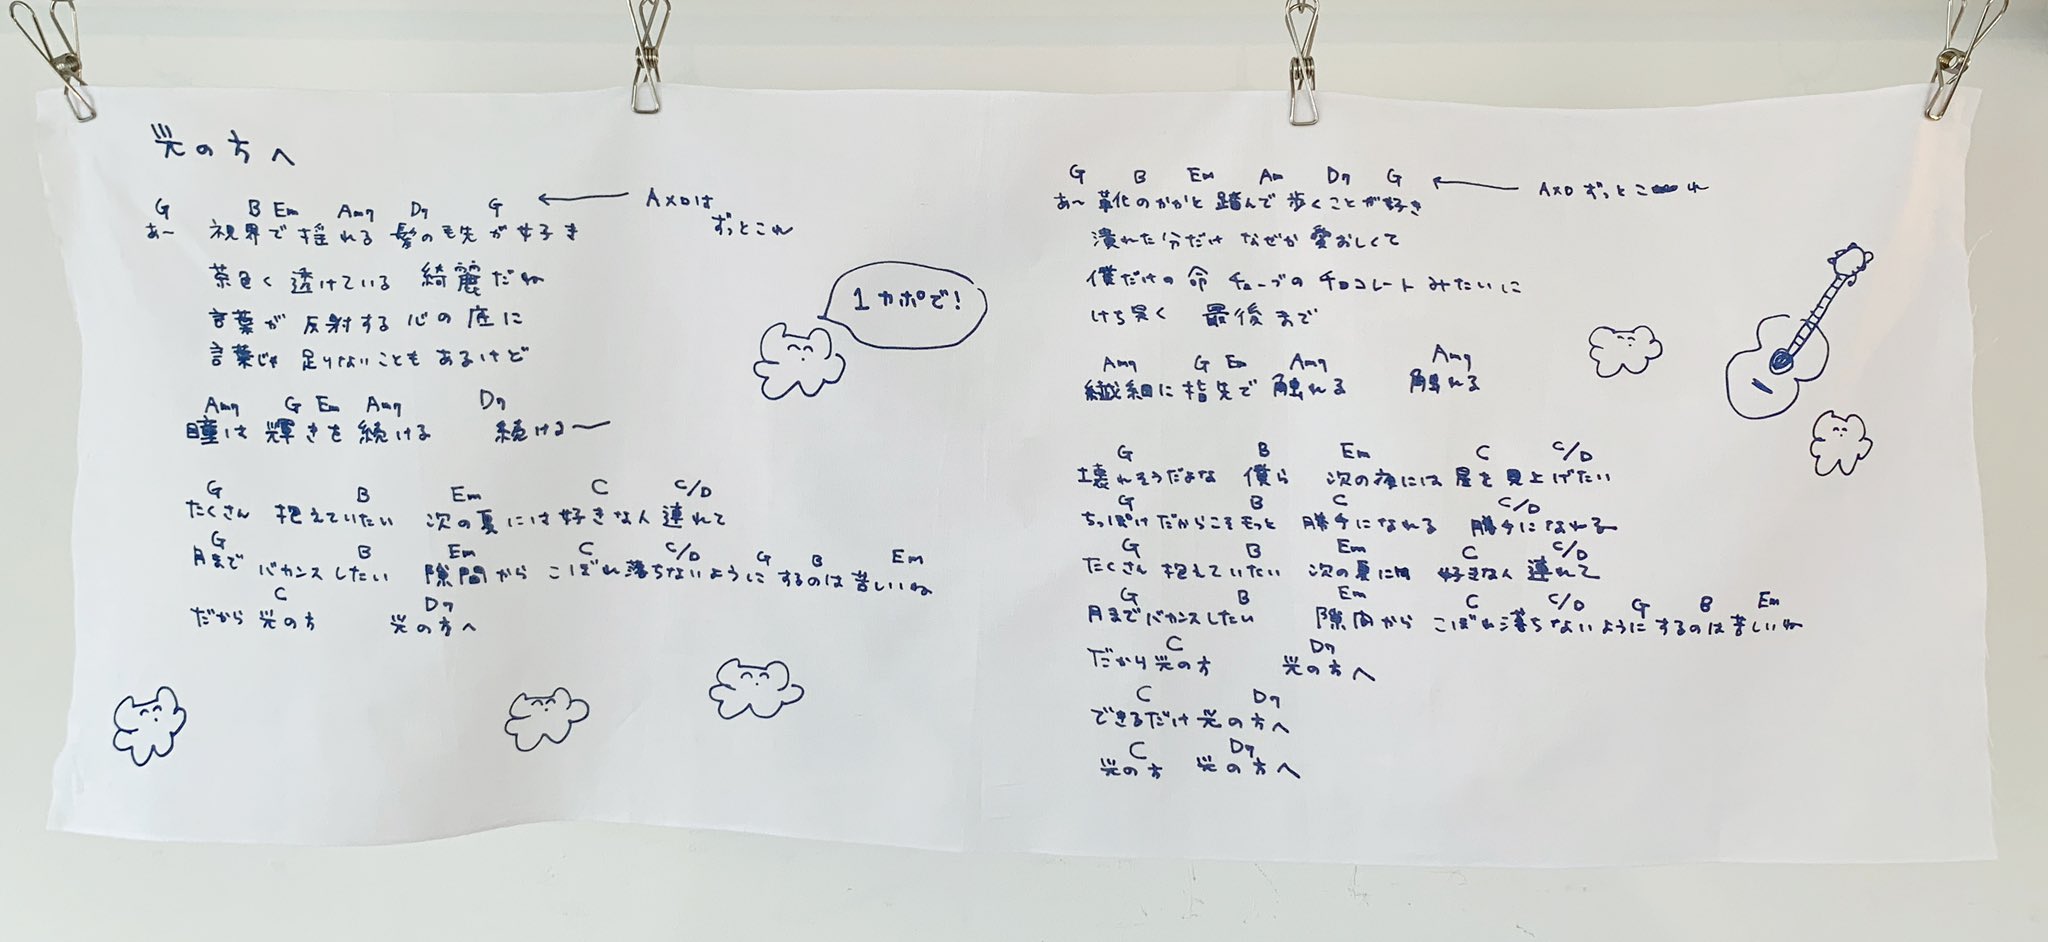 光の方へ
G B Em Am7 D7 G ← Aメロは ずっとこれ
あ〜 視界で揺れる 髪の毛先が好き
茶色く 透けている 綺麗だね
言葉が 反射する 心の 底に
言葉じゃ 足りないことも あるけど
Am7 G Em Am7 D7
瞳は 輝きを 続ける 続ける〜
G B Em C C/D
たくさん 抱えていたい 次の夏には好きな人 連れて
G B Em C C/D G B Em
月まで バカンスしたい 隙間から こぼれ落ちないように するのは苦しいね
C D7
だから 光の方 光の方へ
1カポで!
G B Em Am D7 G ← Aメロ ずっとこれ
あ〜 革靴のかかと 踏んで 歩くことが好き
潰れた分だけ なぜか 愛おしくて
僕だけの 命 チューブの チョコレート みたいに
けち臭く 最後まで
Am7 G Em Am7 Am7
繊細に 指先で 触れる 触れる
G B Em C C/D
壊れそうだよな 僕ら 次の夜には 星を 見上げたい
G B C C/D
ちっぽけ だからこそ もっと 勝手になれる 勝手になれる
G B Em C C/D
たくさん 抱えていたい 次の夏には 好きな人 連れて
G B Em C C/D G B Em
月までバカンスしたい 隙間から こぼれ落ちないように するのは苦しいね
C D7
だから光の方 光の方へ
C D7
できるだけ 光の方へ
C D7
光の方 光の方へ